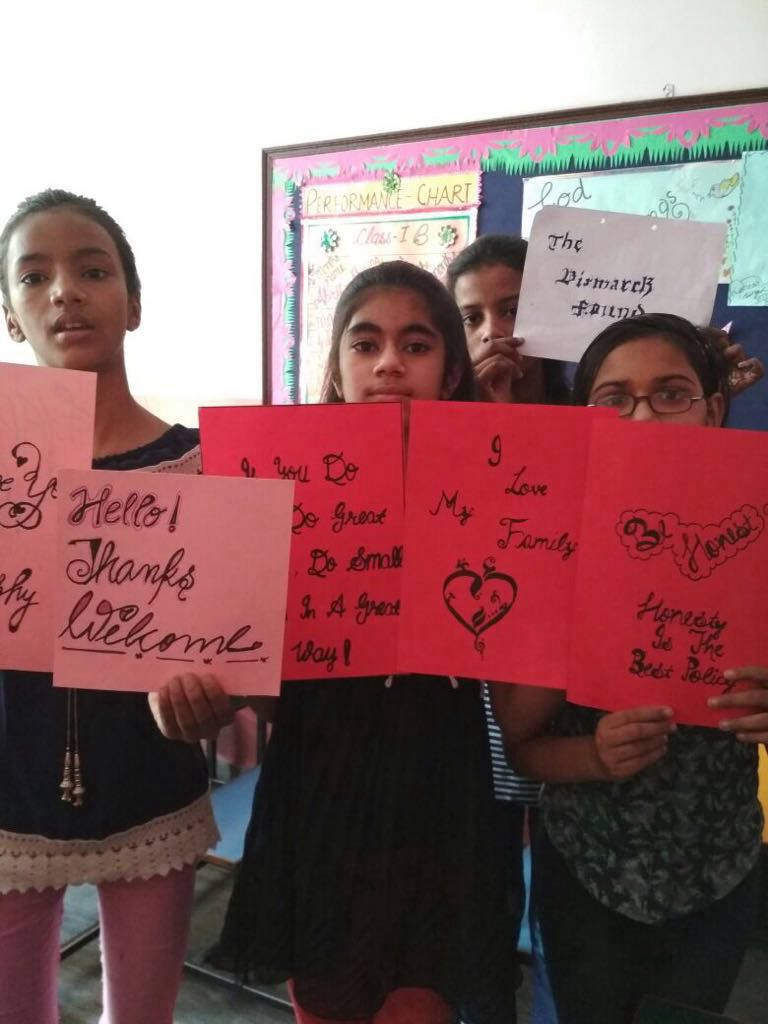 PERFORMANCE-CHART
Class-I B
God
The
Bismarck
Found
Hello!
Thanks
Welcome
You Do
Do Great
Do Small
In A Great
Way!
I
Love
My
Family
Be Honest
Honesty
Is The
Best Policy